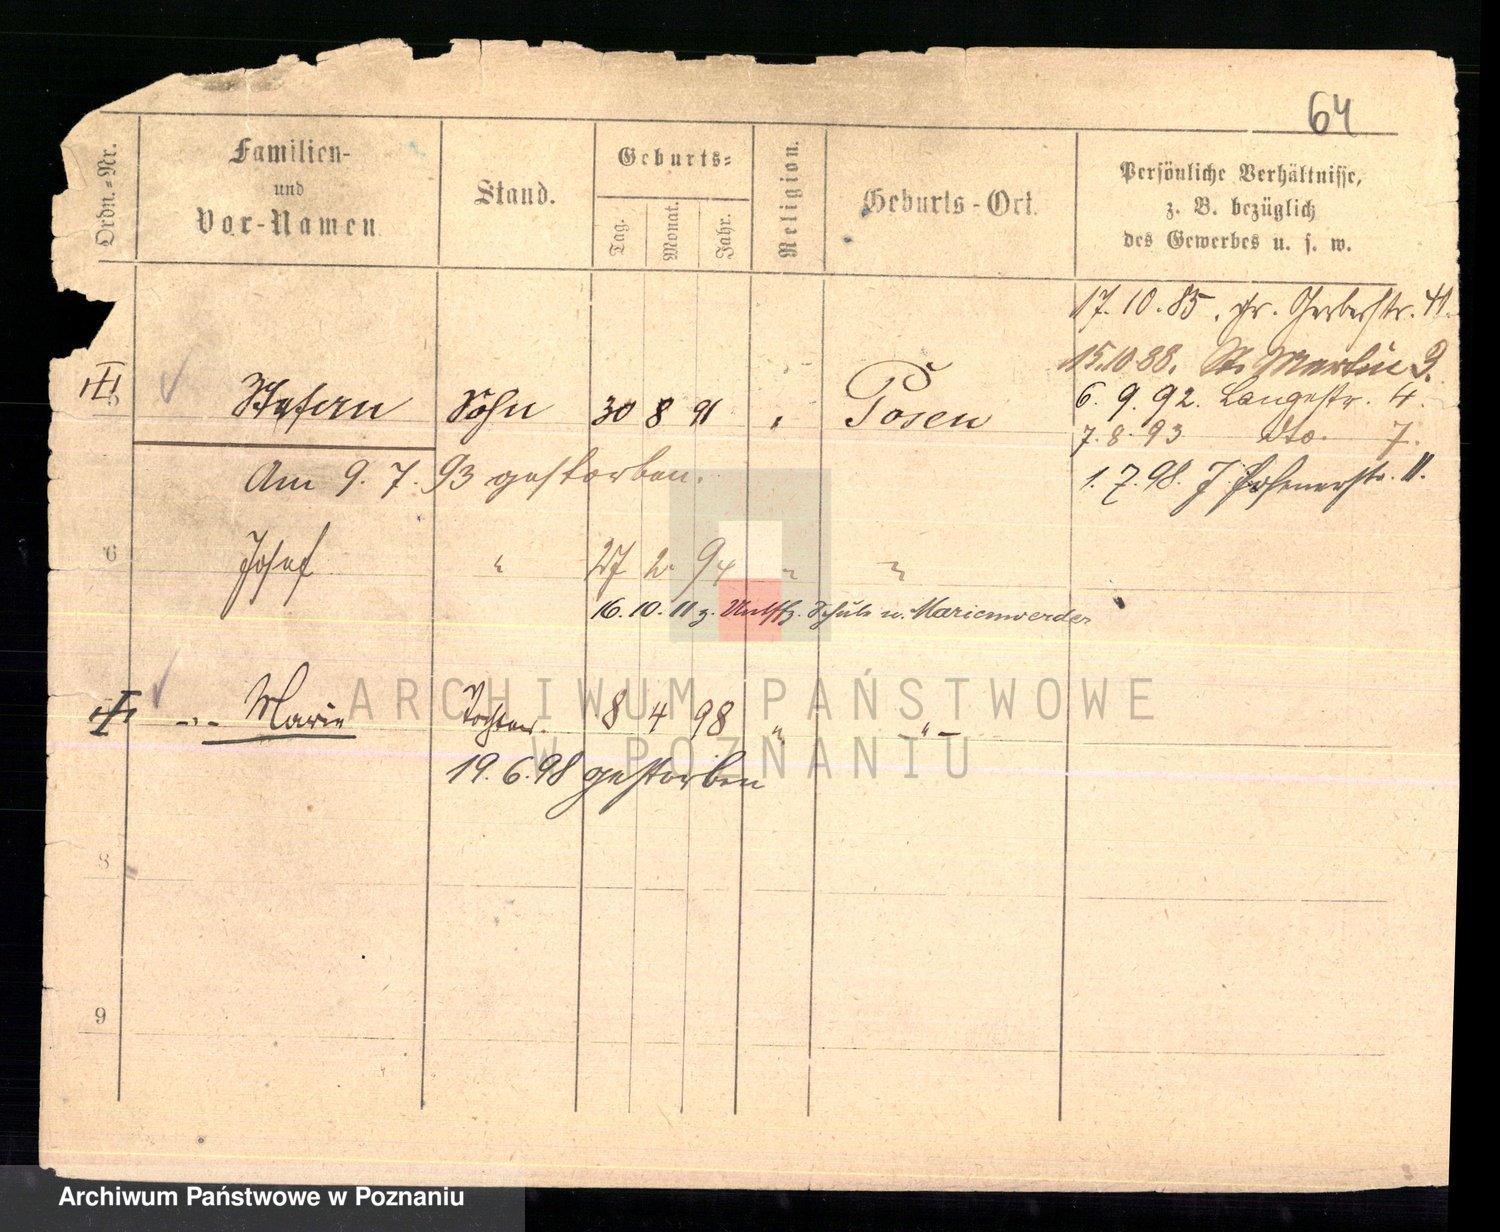 64
Ordn.-Nr.
Familien-
und
Vor-Namen
Stand.
Geburts-
Tag.
Monat.
Jahr.
Religion.
Geburts-Ort.
Persönliche Verhältnisse,
z. B. bezüglich
des Gewerbes u. s. w.
17.10.85. gr. Gerberstr. 41.
15.10.88. St. Martin 9.
6. 9. 92. Langestr. 4.
7. 8. 93 dto. 7.
1. 7. 98. Posenerstr. 11.
5 Stefan Sohn 30 8 91 " Posen
Am 9. 7. 93 gestorben.
6 Josef " 27 2 94 " "
16. 10. 11 z. Schule n. Marienwerder
-"- Marie Tochter. 8 4 98 " -"-
19. 6. 98 gestorben
8
9
ARCHIWUM PAŃSTWOWE
W POZNANIU
Archiwum Państwowe w Poznaniu